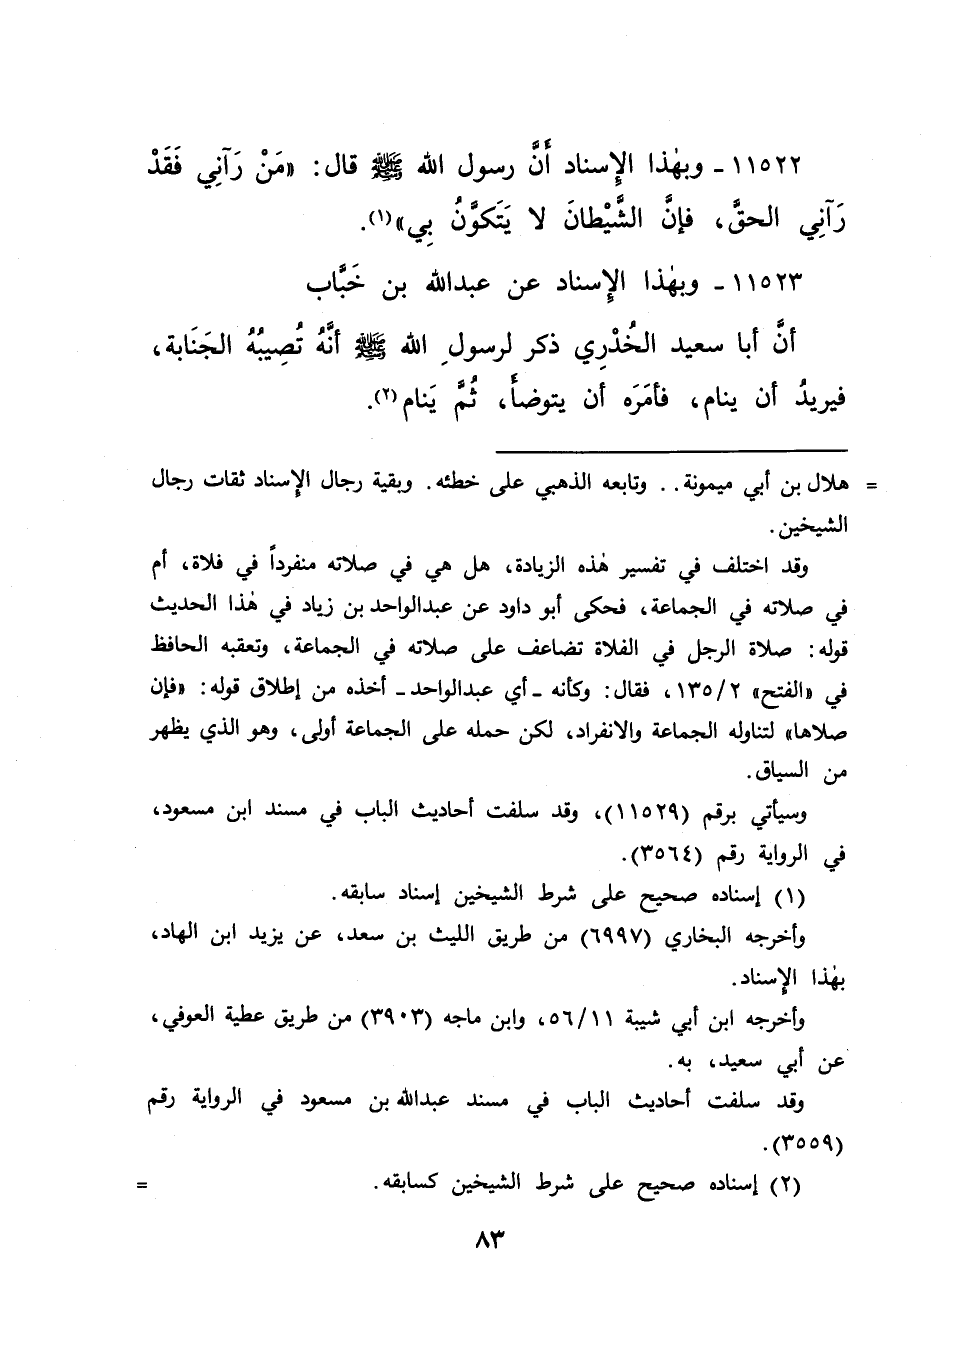 ١١٥٢٢ ـ وبهٰذا الإِسناد أَنَّ رسول الله ﷺ قال: «مَنْ رَآنِي فَقَدْ
رَآنِي الحقَّ، فإنَّ الشَّيْطانَ لا يَتَكوَّنُ بِي»(١).
١١٥٢٣ ـ وبهٰذا الإِسناد عن عبدالله بن خَبَّاب
أنَّ أبا سعيد الخُدْرِي ذكر لرسولِ الله ﷺ أنَّهُ تُصِيبُهُ الجَنَابة،
فيريدُ أن ينام، فأمَرَه أن يتوضأَ، ثُمَّ يَنام(٢).
= هلال بن أبي ميمونة.. وتابعه الذهبي على خطئه. وبقية رجال الإِسناد ثقات رجال
الشيخين.
وقد اختلف في تفسير هٰذه الزيادة، هل هي في صلاته منفرداً في فلاة، أم
في صلاته في الجماعة، فحكى أبو داود عن عبدالواحد بن زياد في هٰذا الحديث
قوله: صلاة الرجل في الفلاة تضاعف على صلاته في الجماعة، وتعقبه الحافظ
في «الفتح» ١٣٥/٢، فقال: وكأنه ـ أي عبدالواحد ـ أخذه من إطلاق قوله: «فإن
صلاها» لتناوله الجماعة والانفراد، لكن حمله على الجماعة أولى، وهو الذي يظهر
من السياق.
وسيأتي برقم (١١٥٢٩)، وقد سلفت أحاديث الباب في مسند ابن مسعود،
في الرواية رقم (٣٥٦٤).
(١) إسناده صحيح على شرط الشيخين إسناد سابقه.
وأخرجه البخاري (٦٩٩٧) من طريق الليث بن سعد، عن يزيد ابن الهاد،
بهٰذا الإِسناد.
وأخرجه ابن أبي شيبة ٥٦/١١، وابن ماجه (٣٩٠٣) من طريق عطية العوفي،
عن أبي سعيد، به.
وقد سلفت أحاديث الباب في مسند عبدالله بن مسعود في الرواية رقم
(٣٥٥٩).
(٢) إسناده صحيح على شرط الشيخين كسابقه. =
٨٣